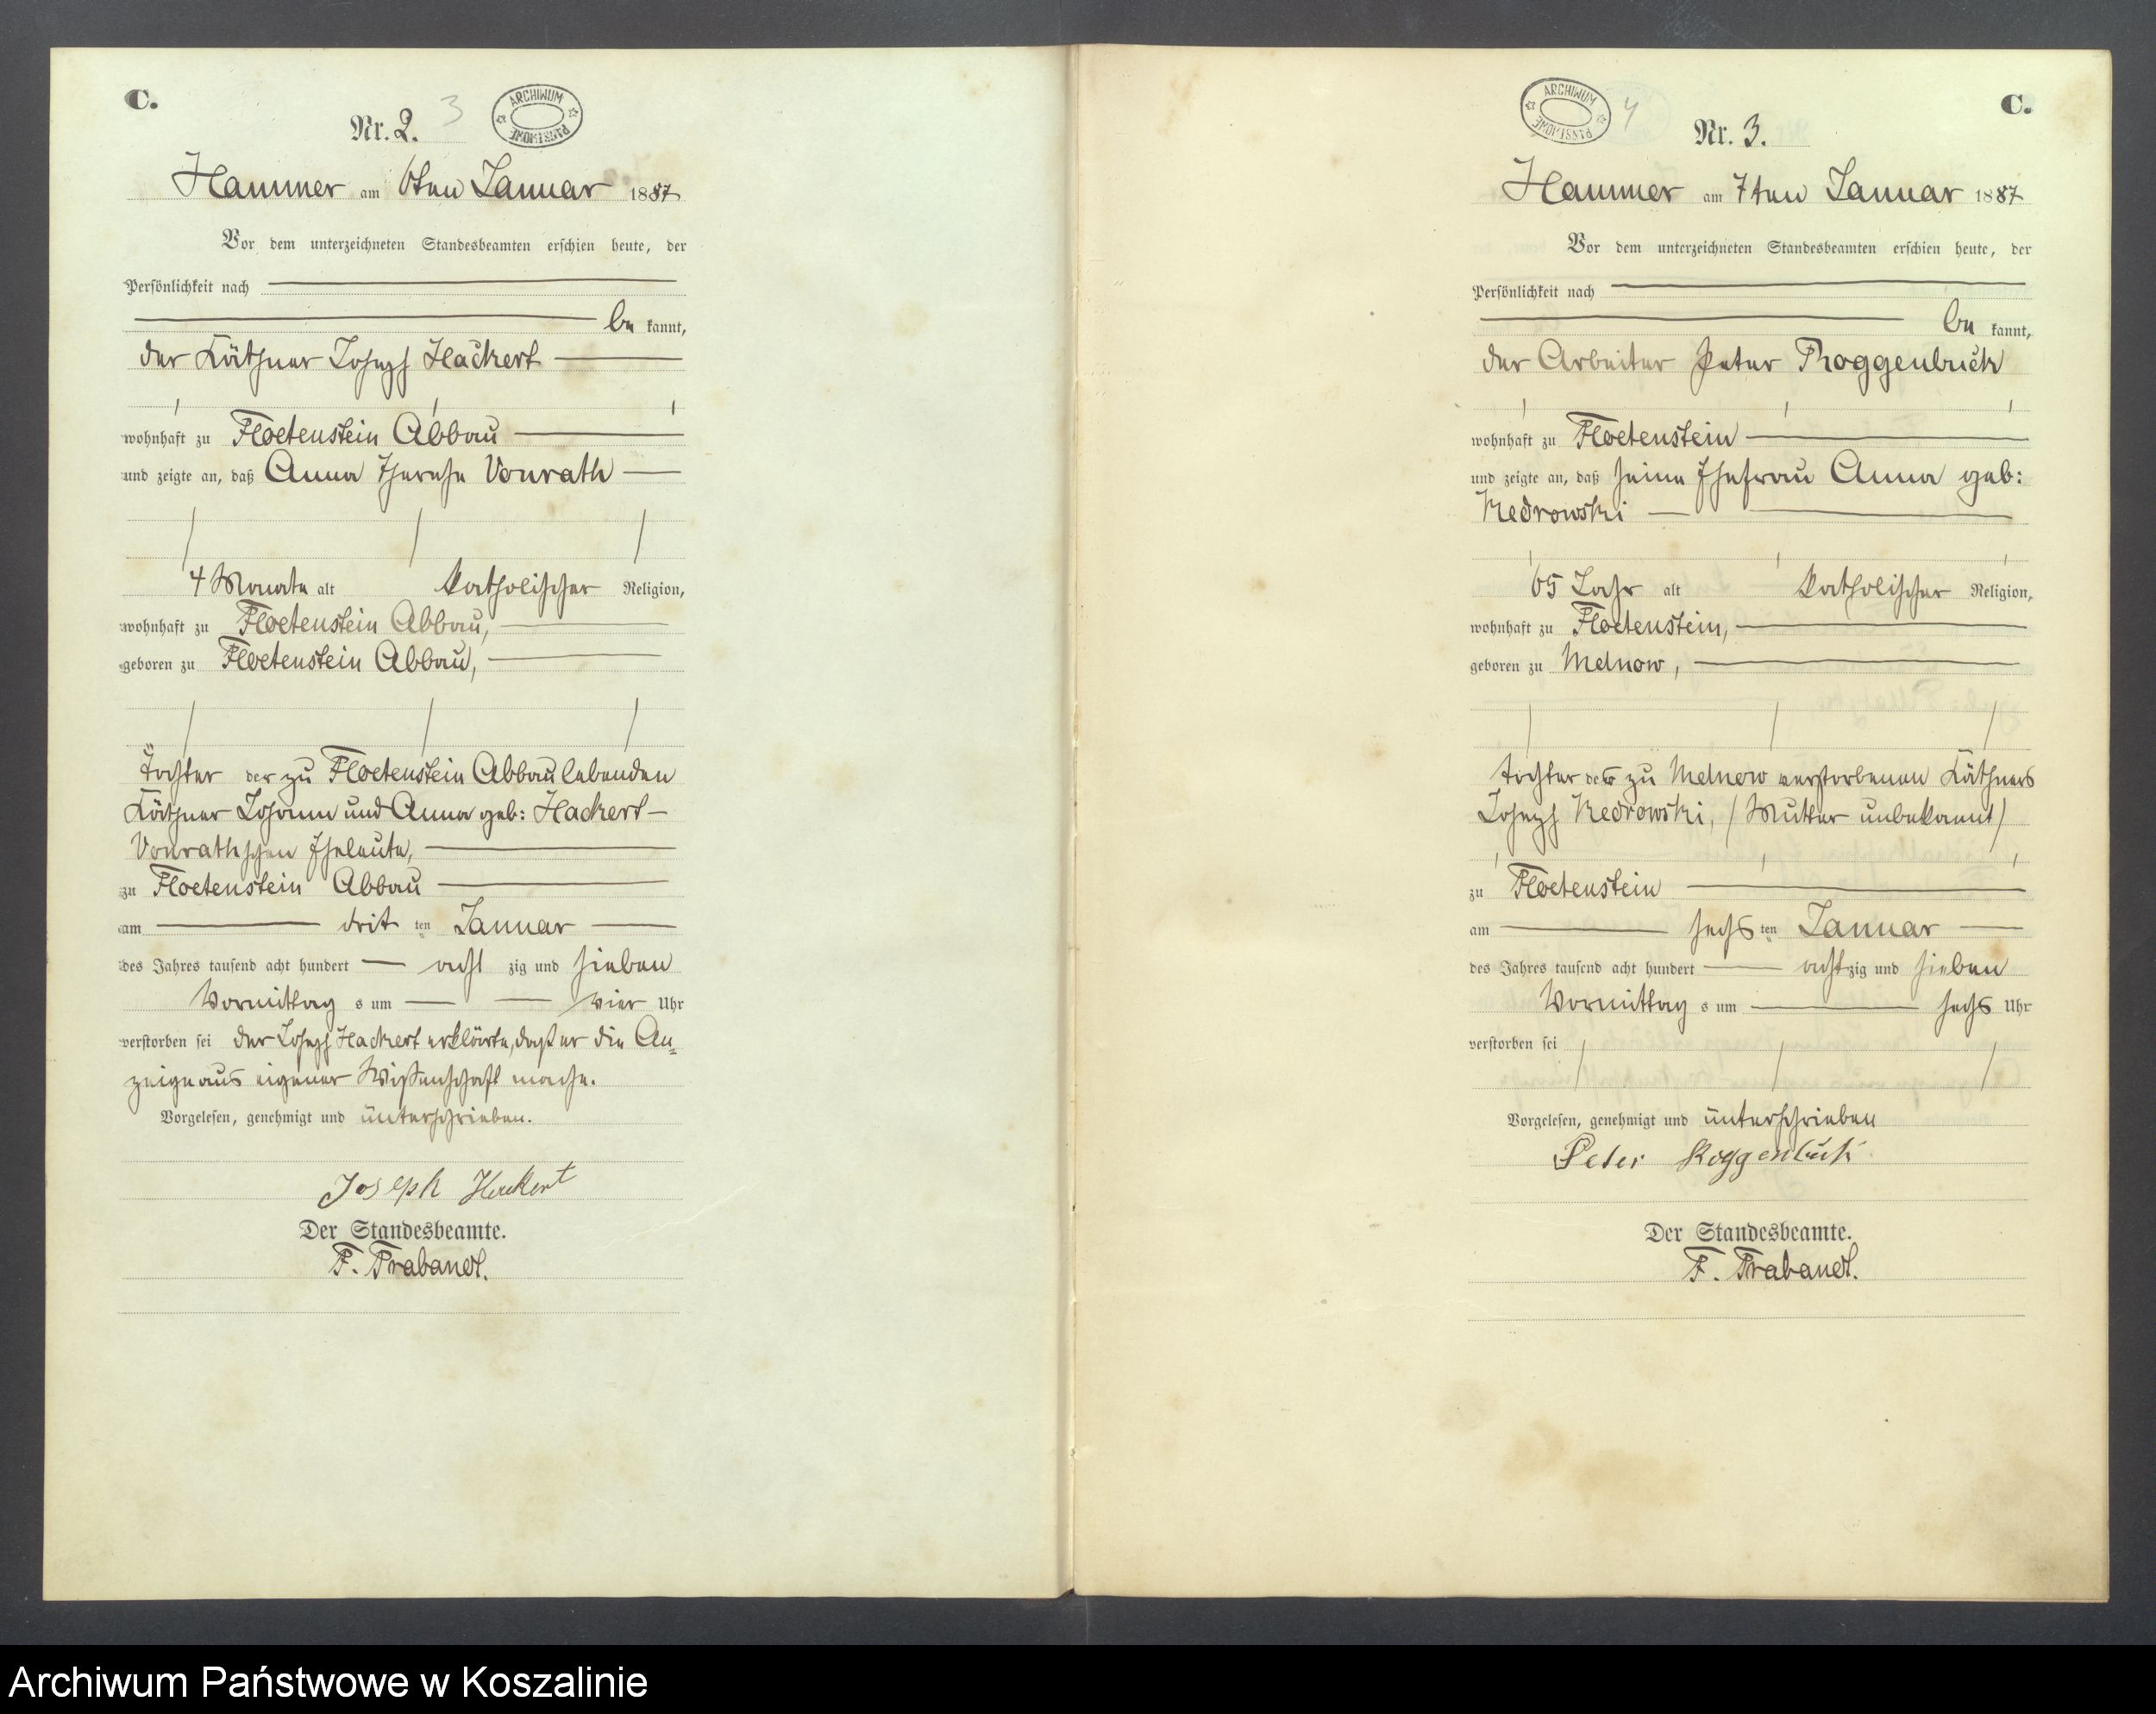 C.
Nr. 2. 3
ARCHIWUM PAŃSTWOWE
Hammer am 6ten Januar 1887
Vor dem unterzeichneten Standesbeamten erschien heute, der
Persönlichkeit nach
be kannt,
der Käthner Joseph Hackert
wohnhaft zu Floetenstein Abbau
und zeigte an, daß Anna Therese Vonrath
4 Monate alt katholischer Religion,
wohnhaft zu Floetenstein Abbau,
geboren zu Floetenstein Abbau,
Tochter der zu Floetenstein Abbau lebenden
Käthner Johann und Anna geb: Hackert-
Vonrathschen Eheleute,
zu Floetenstein Abbau
am drit ten Januar
des Jahres tausend acht hundert acht zig und sieben
Vormittag s um vier Uhr
verstorben sei der Joseph Hackert erklärte, daß er die An-
zeige aus eigener Wißenschaft mache.
Vorgelesen, genehmigt und unterschrieben.
Joseph Hackert
Der Standesbeamte.
F. Trabandt.
ARCHIWUM PAŃSTWOWE
4
C.
Nr. 3.
Hammer am 7ten Januar 1887
Vor dem unterzeichneten Standesbeamten erschien heute, der
Persönlichkeit nach
be kannt,
der Arbeiter Peter Roggenbuck
wohnhaft zu Floetenstein
und zeigte an, daß seine Ehefrau Anna geb:
Kedrowski
65 Jahr alt katholischer Religion,
wohnhaft zu Floetenstein,
geboren zu Melnow,
Tochter des zu Melnow verstorbenen Käthners
Joseph Kedrowski, /Mutter unbekannt/
zu Floetenstein
am sechs ten Januar
des Jahres tausend acht hundert acht zig und sieben
Vormittag s um sechs Uhr
verstorben sei
Vorgelesen, genehmigt und unterschrieben
Peter Roggenbuck
Der Standesbeamte.
F. Trabandt.
Archiwum Państwowe w Koszalinie